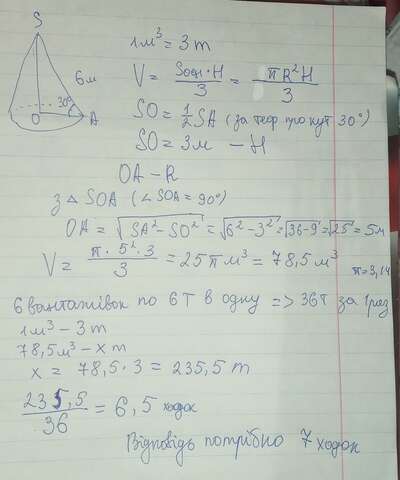 S
6м
30°
O
A
1м³ = 3т
V = Sосн·H / 3 = πR²H / 3
SO = 1/2 SA (за теор про кут 30°)
SO = 3м - H
OA - R
з △ SOA (∠ SOA = 90°)
OA = √SA² - SO² = √6² - 3² = √36 - 9 = √25 = 5м
V = π · 5² · 3 / 3 = 25πм³ = 78,5м³
π = 3,14
6 вантажівок по 6Т в одну => 36Т за 1раз
1м³ - 3т
78,5м³ - x т
x = 78,5 · 3 = 235,5 т
235,5 / 36 = 6,5 ходок
Відповідь потрібно 7 ходок